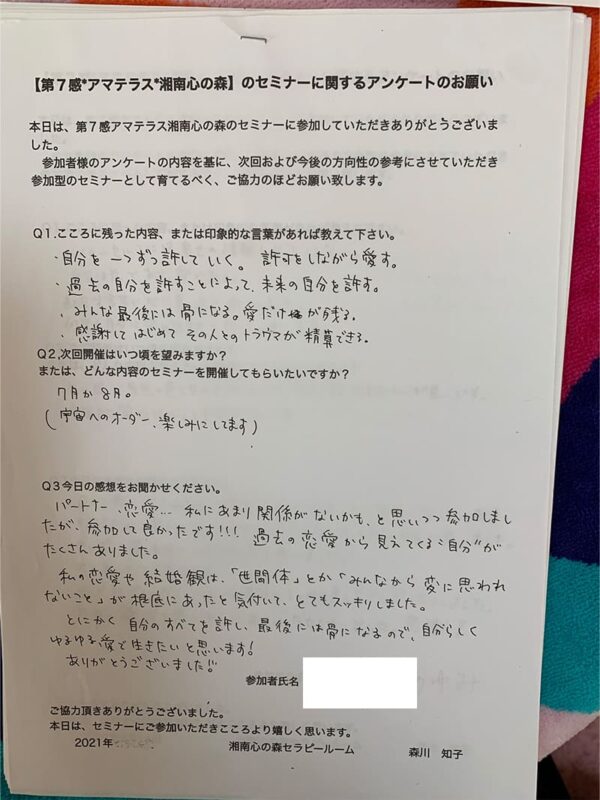 【第７感*アマテラス*湘南心の森】のセミナーに関するアンケートのお願い
本日は、第７感アマテラス湘南心の森のセミナーに参加していただきありがとうございま
した。
参加者様のアンケートの内容を基に、次回および今後の方向性の参考にさせていただき
参加型のセミナーとして育てるべく、ご協力のほどお願い致します。
Q１.こころに残った内容、または印象的な言葉があれば教えて下さい。
・自分を一つずつ許していく。 許可をしながら愛す。
・過去の自分を許すことによって、未来の自分を許す。
・みんな最後には骨になる。愛だけが残る。
・感謝してはじめてその人とのトラウマが精算できる。
Q２,次回開催はいつ頃を望みますか？
または、どんな内容のセミナーを開催してもらいたいですか？
7月か8月。
(宇宙へのオーダー、楽しみにしてます)
Q３今日の感想をお聞かせください。
パートナー、恋愛… 私にあまり関係がないかも、と思いつつ参加しまし
たが、参加して良かったです!!! 過去の恋愛から見えてくる"自分"が
たくさんありました。
私の恋愛や結婚観は、「世間体」とか「みんなから変に思われ
ないこと」が根底にあったと気付いて、とてもスッキリしました。
とにかく自分のすべてを許し、最後には骨になるので、自分らしく
ゆるゆる愛で生きたいと思います!
ありがとうございました!!
参加者氏名
ご協力頂きありがとうございました。
本日は、セミナーにご参加いただきこころより嬉しく思います。
2021年
湘南心の森セラピールーム 森川 知子